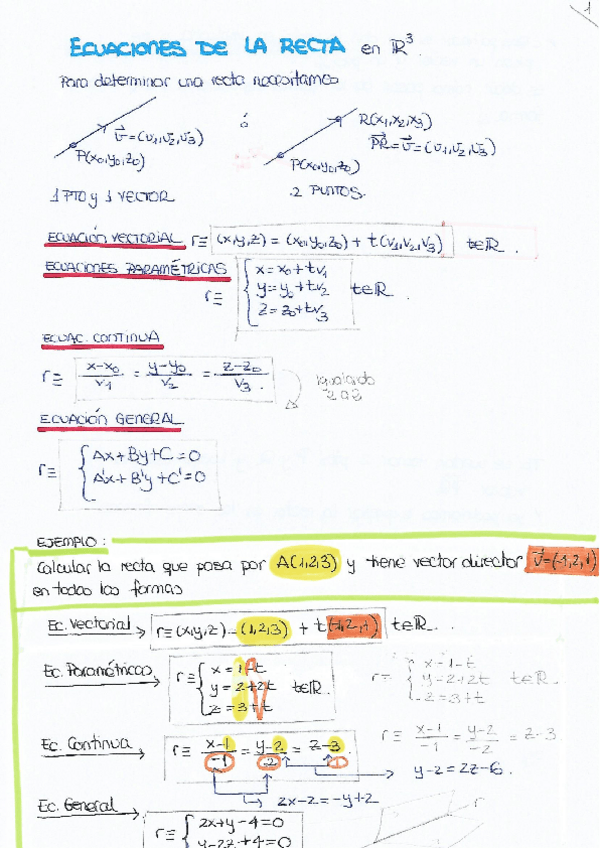 1
ECUACIONES DE LA RECTA en ℝ³.
Para determinar una recta necesitamos
v⃗=(v₁,v₂,v₃)
P(x₀,y₀,z₀)
ó
R(x₁,x₂,x₃)
PR⃗=v⃗=(v₁,v₂,v₃)
P(x₀,y₀,z₀)
1 PTO y 1 VECTOR
2 PUNTOS.
ECUACIÓN VECTORIAL r≡ (x,y,z) = (x₀,y₀,z₀) + t(v₁,v₂,v₃) t∈ℝ.
ECUACIONES PARAMÉTRICAS
r≡ { x = x₀+tv₁
y = y₀+tv₂ t∈ℝ.
z = z₀+tv₃
ECUAC. CONTINUA
r≡ x-x₀/v₁ = y-y₀/v₂ = z-z₀/v₃.
igualando
2 a 2
ECUACIÓN GENERAL
r≡ { Ax+By+C=0
A'x+B'y+C'=0
EJEMPLO:
Calcular la recta que pasa por A(1,2,3) y tiene vector director v⃗=(-1,2,1)
en todas las formas
Ec. Vectorial → r≡(x,y,z)=(1,2,3) + t(-1,2,1) t∈ℝ.
Ec. Paramétricas → r≡ { x=1-t
y=2+2t t∈ℝ.
z=3+t
r≡ { x=1-t
y=2+2t t∈ℝ.
z=3+t
Ec. Continua → r≡ x-1/-1 = y-2/2 = z-3/1
r≡ x-1/-1 = y-2/-2 = z-3.
y-2=2z-6.
2x-2=-y+2
Ec. General → r≡ { 2x+y-4=0
y-2z+4=0
r